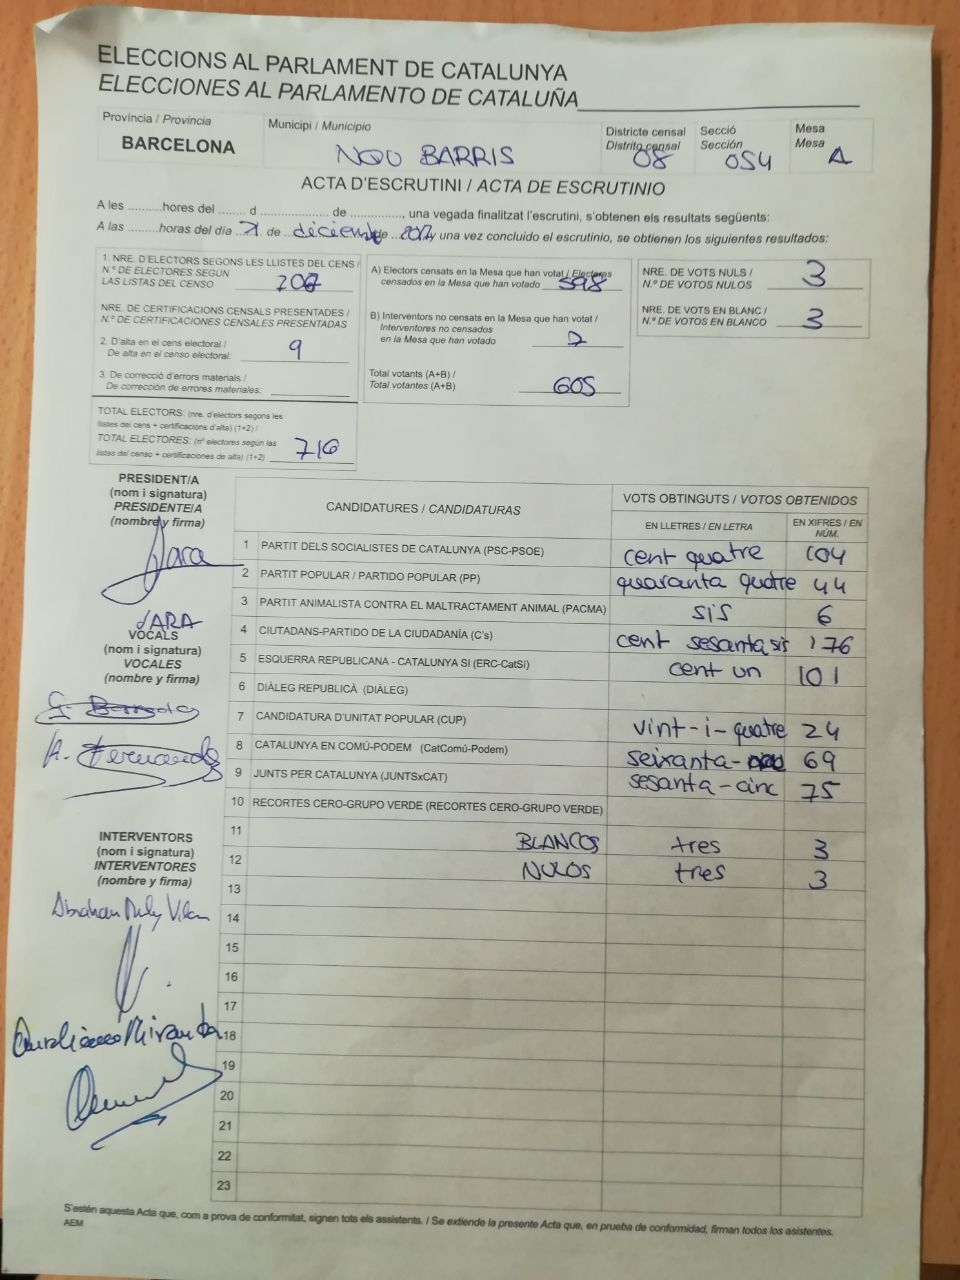 ELECCIONS AL PARLAMENT DE CATALUNYA
ELECCIONES AL PARLAMENTO DE CATALUÑA
Provincia / Provincia
BARCELONA
Municipi / Municipio
NOU BARRIS
Districte censal
Distrito censal
08
Secció
Sección
054
Mesa
Mesa
A
ACTA D'ESCRUTINI / ACTA DE ESCRUTINIO
A les ..........hores del ........ d ..................... de ..............., una vegada finalitzat l'escrutini, s'obtenen els resultats següents:
A las .........horas del día 21 de ...diciembre de 2017 y una vez concluido el escrutinio, se obtienen los siguientes resultados:
1. NRE. D'ELECTORS SEGONS LES LLISTES DEL CENS /
N.º DE ELECTORES SEGUN
LAS LISTAS DEL CENSO
NRE. DE CERTIFICACIONS CENSALS PRESENTADES /
N.º DE CERTIFICACIONES CENSALES PRESENTADAS
2. D'alta en el cens electoral /
De alta en el censo electoral: 9
3. De correcció d'errors materials /
De corrección de errores materiales:
TOTAL ELECTORS: (nre. d'electors segons les
llistes del cens + certificacions d'alta) (1+2) /
TOTAL ELECTORES: (nº electores según las
listas del censo + certificaciones de alta) (1+2) 716
A) Electors censats en la Mesa que han votat / Electores
censados en la Mesa que han votado 598
B) Interventors no censats en la Mesa que han votat /
Interventores no censados
en la Mesa que han votado
Total votants (A+B) /
Total votantes (A+B) 605
NRE. DE VOTS NULS /
N.º DE VOTOS NULOS 3
NRE. DE VOTS EN BLANC /
N.º DE VOTOS EN BLANCO 3
PRESIDENT/A
(nom i signatura)
PRESIDENTE/A
(nombre y firma)
Jara
JARA
VOCALS
(nom i signatura)
VOCALES
(nombre y firma)
A. Fernandez
INTERVENTORS
(nom i signatura)
INTERVENTORES
(nombre y firma)
CANDIDATURES / CANDIDATURAS
VOTS OBTINGUTS / VOTOS OBTENIDOS
EN LLETRES / EN LETRA
EN XIFRES / EN NÚM.
1 PARTIT DELS SOCIALISTES DE CATALUNYA (PSC-PSOE) cent quatre 104
2 PARTIT POPULAR / PARTIDO POPULAR (PP) quaranta quatre 44
3 PARTIT ANIMALISTA CONTRA EL MALTRACTAMENT ANIMAL (PACMA) sis 6
4 CIUTADANS-PARTIDO DE LA CIUDADANÍA (C's) cent sesanta sis 176
5 ESQUERRA REPUBLICANA - CATALUNYA SI (ERC-CatSí) cent un 101
6 DIÀLEG REPUBLICÀ (DIÀLEG)
7 CANDIDATURA D'UNITAT POPULAR (CUP) vint-i-quatre 24
8 CATALUNYA EN COMÚ-PODEM (CatComú-Podem) seixanta-nou 69
9 JUNTS PER CATALUNYA (JUNTSxCAT) sesanta-cinc 75
10 RECORTES CERO-GRUPO VERDE (RECORTES CERO-GRUPO VERDE)
11 BLANCOS tres 3
12 NULOS tres 3
13
14
15
16
17
18
19
20
21
22
23
S'estén aquesta Acta que, com a prova de conformitat, signen tots els assistents. / Se extiende la presente Acta que, en prueba de conformidad, firman todos los asistentes.
AEM